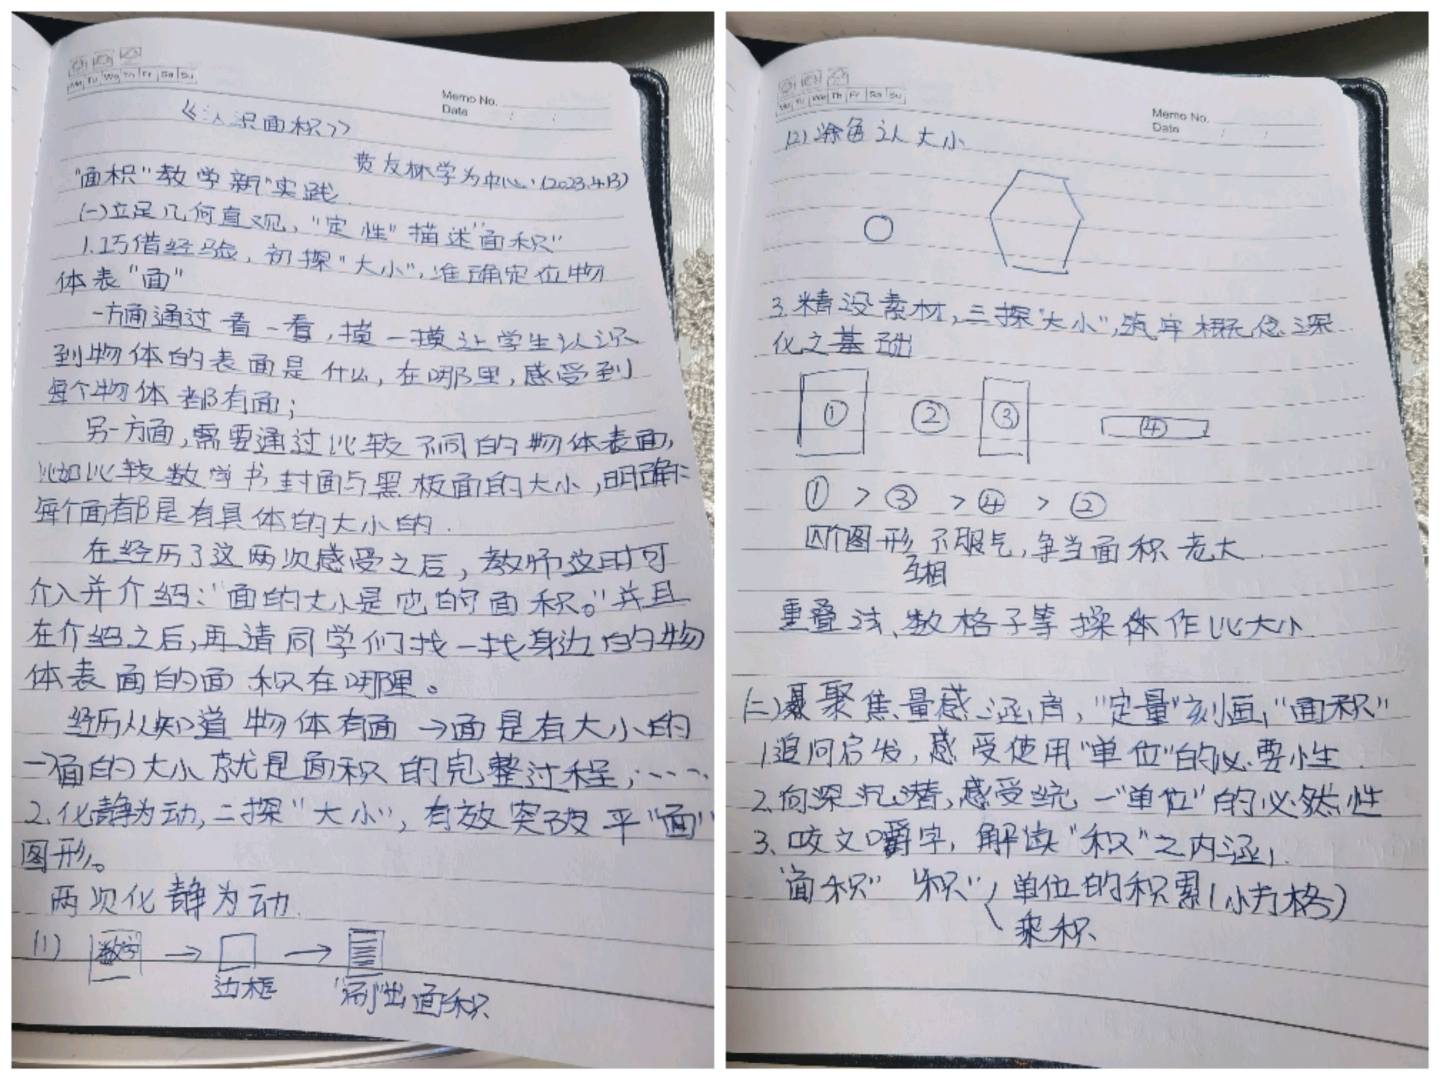 Mo Tu We Th Fr Sa Su
Memo No.
Date
《认识面积》
黄友林学为中心(2023.4.13)
"面积"教学新"实践
(一)立足几何直观,"定性"描述"面积"
1.巧借经验,初探"大小",准确定位物
体表"面"
一方面通过看一看,摸一摸让学生认识
到物体的表面是什么,在哪里,感受到
每个物体都有面;
另一方面,需要通过比较不同的物体表面,
比如比较数学书封面与黑板面的大小,明确
每个面都是有具体的大小的.
在经历了这两次感受之后,教师这时可
介入并介绍:"面的大小是它的面积。"并且
在介绍之后,再请同学们找一找身边的物
体表面的面积在哪里。
经历从知道物体有面→面是有大小的
→面的大小就是面积的完整过程,……
2.化静为动,二探"大小",有效突破平"面"
图形。
两次化静为动.
(1) 数学 → →
边框 "刷"出面积
Mo Tu We Th Fr Sa Su
Memo No.
Date
(2)涂色认大小
3.精设素材,三探"大小",筑牢概念深
化之基础
① ② ③ ④
① > ③ > ④ > ②
四个图形不服气,争当面积老大
互相
重叠法、数格子等操作比大小
(二)聚焦量感涵育,"定量"刻画"面积"
1.追问启发,感受使用"单位"的必要性.
2.向深沉潜,感受统一"单位"的必然性
3、咬文嚼字,解读"积"之内涵,
"面积" "积" 单位的积累(小方格)
乘积